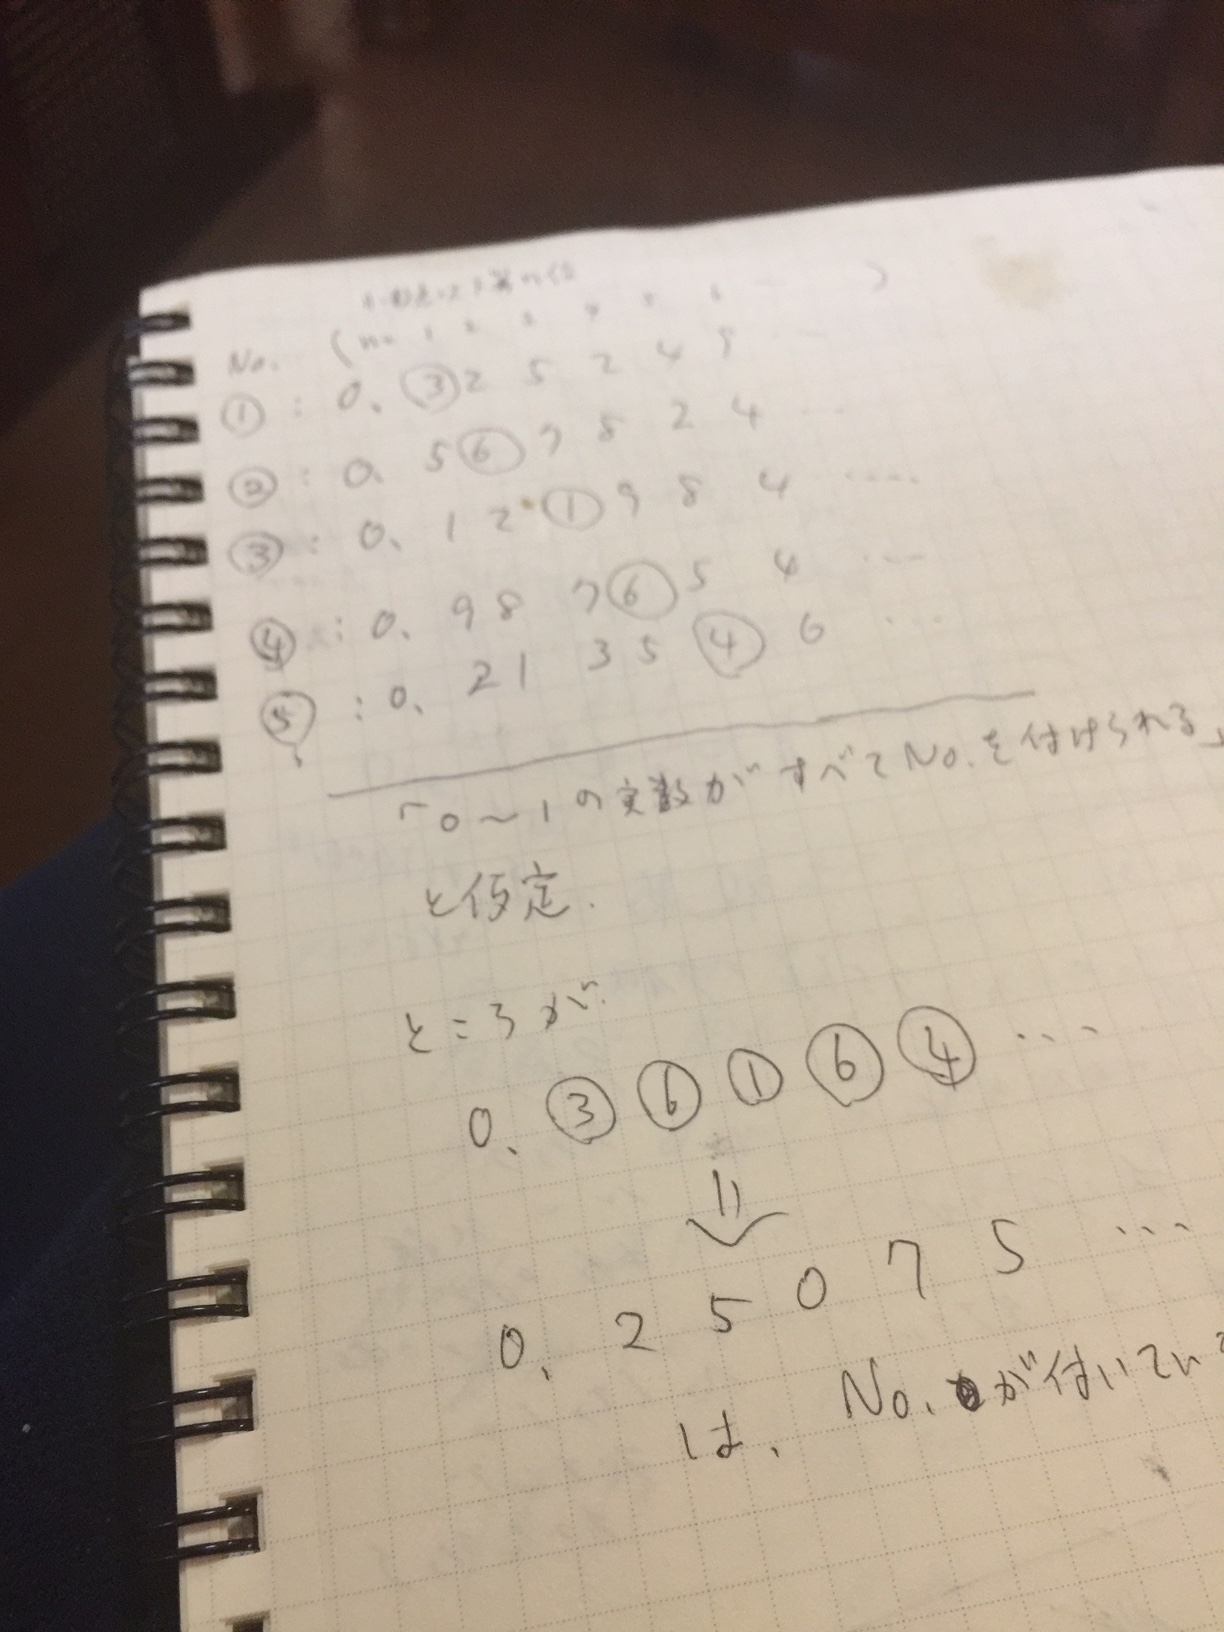 小数点以下第n位
No. (n= 1 2 3 4 5 6 ... )
① : 0. ③ 2 5 2 4 9 ...
② : 0. 5 ⑥ 7 8 2 4 ...
③ : 0. 1 2 ① 9 8 4 ....
④ : 0. 9 8 7 ⑥ 5 4 ...
⑤ : 0. 2 1 3 5 ④ 6 ...
「0〜1の実数がすべてNo.を付けられる」
と仮定.
ところが
0. ③ ⑥ ① ⑥ ④ ...
⇓
0. 2 5 0 7 5 ...
は、 No. が付いてい